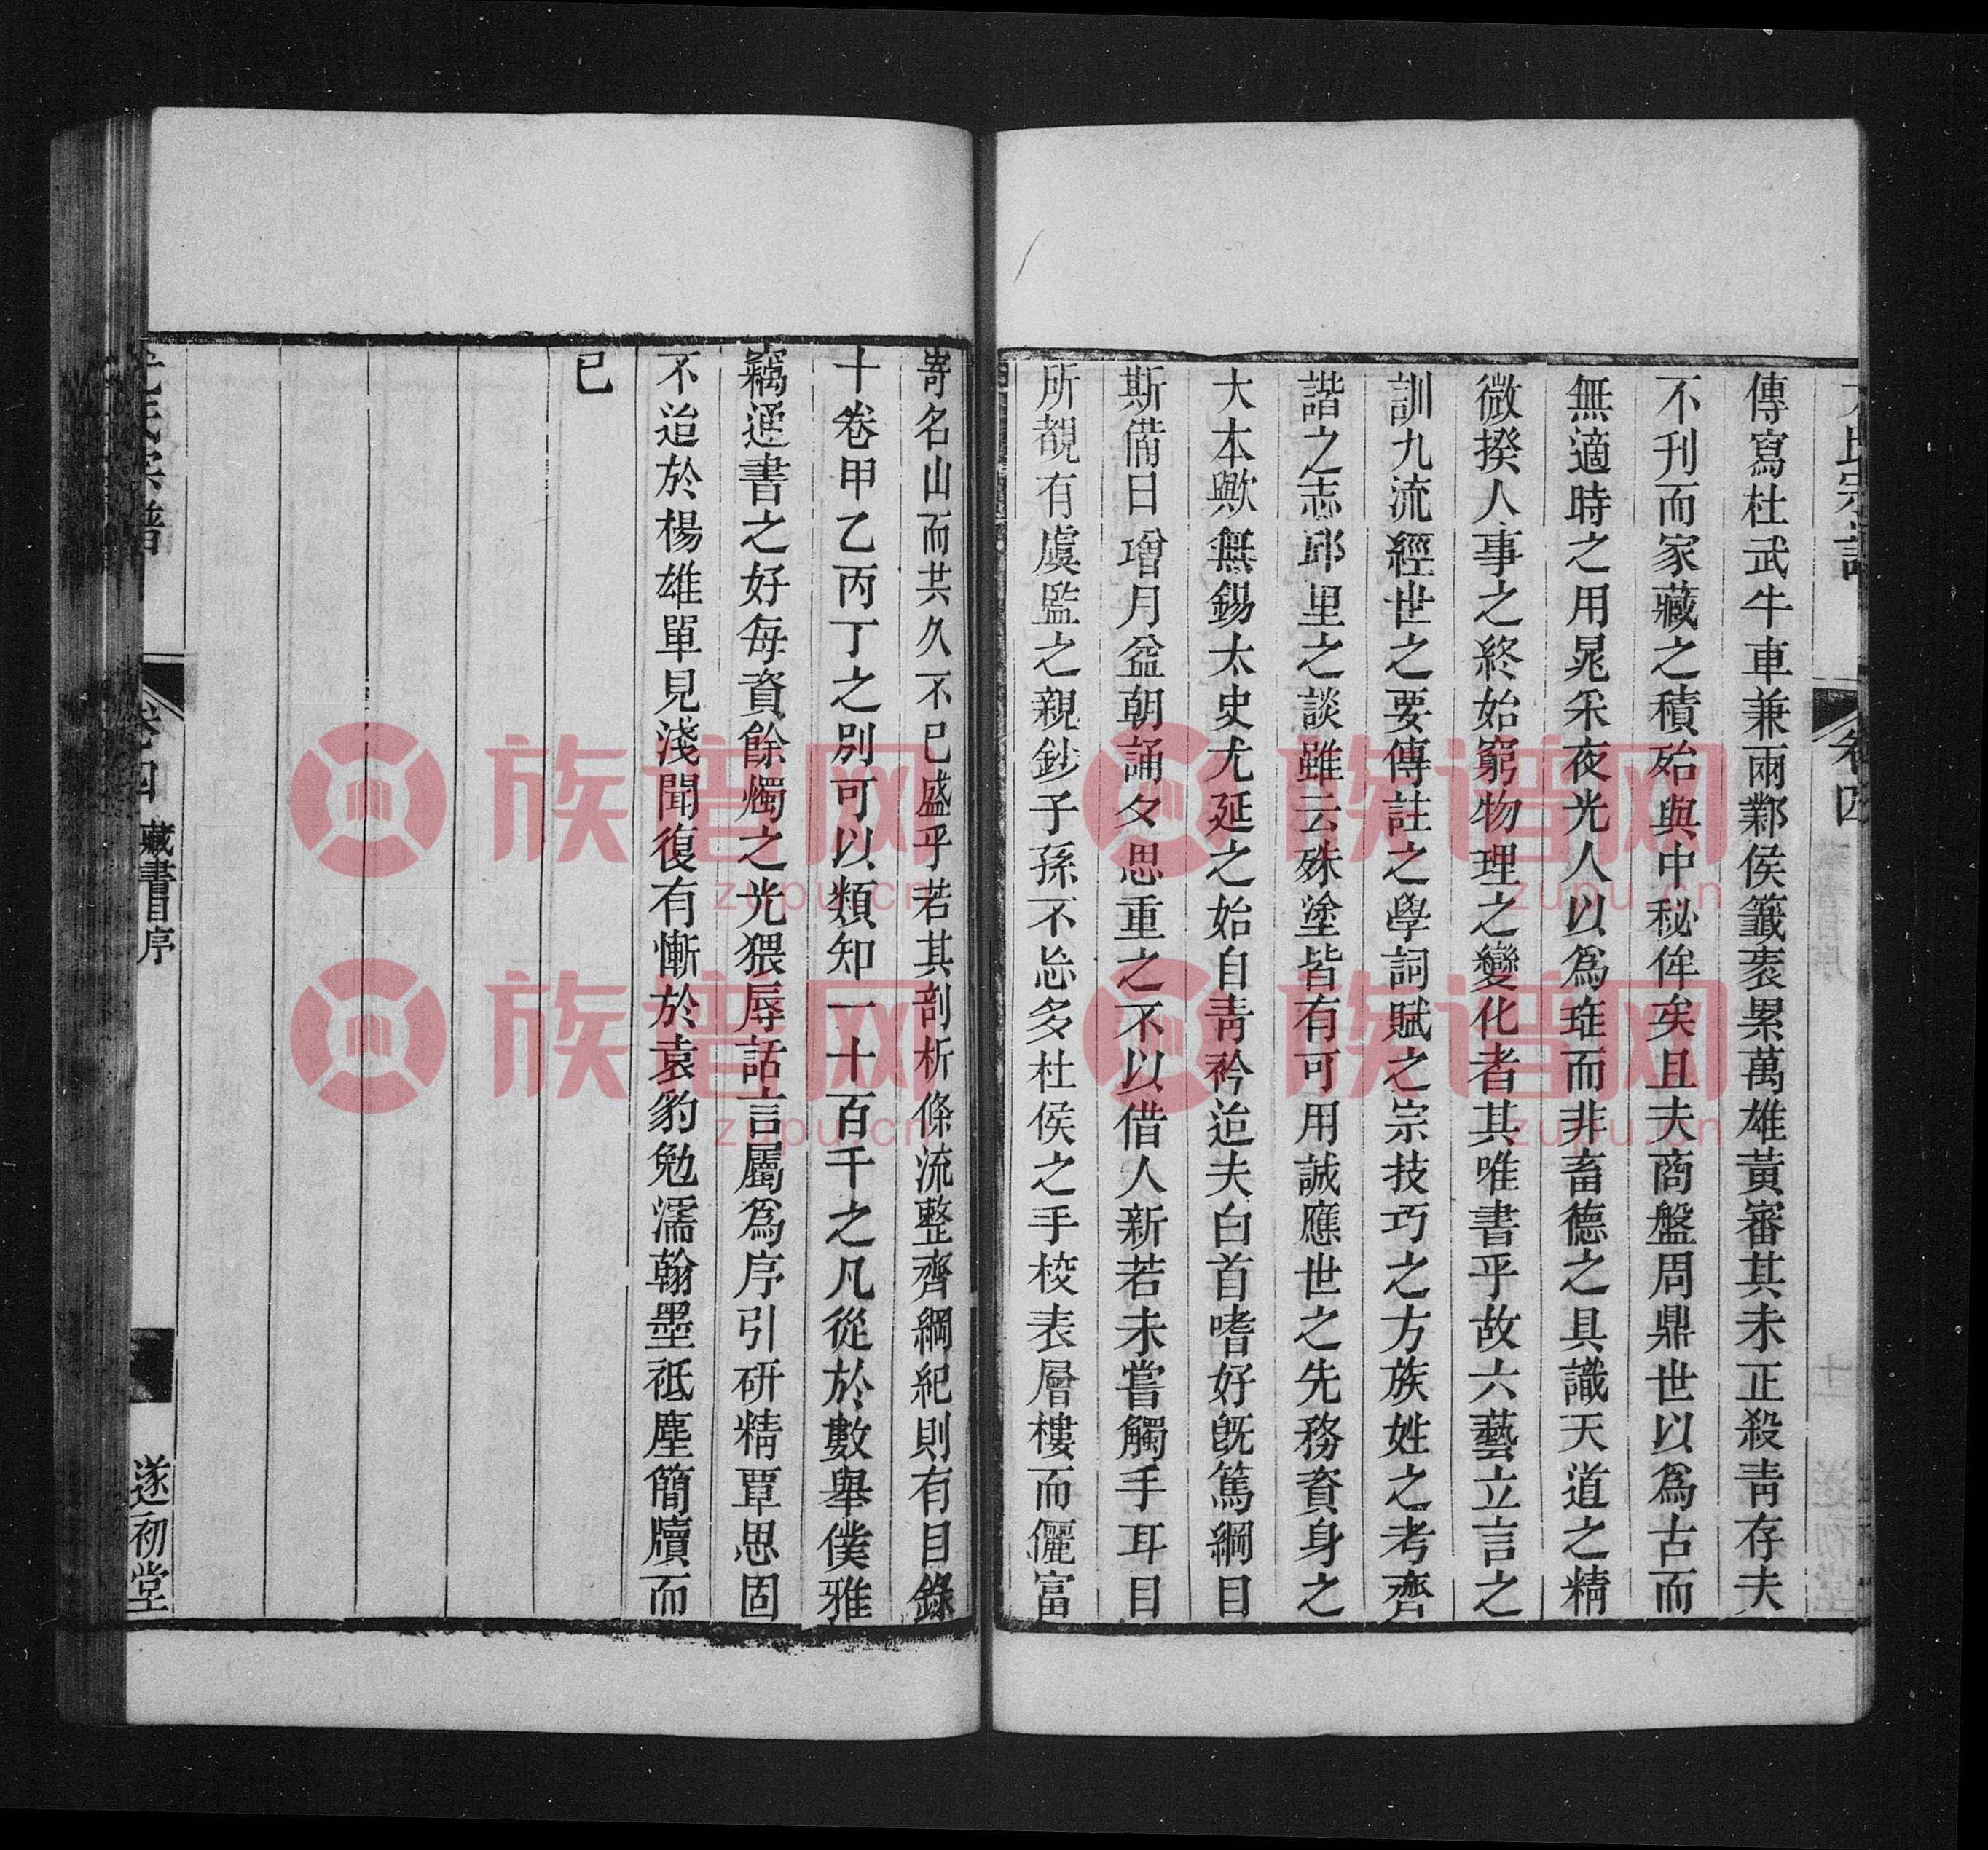 傳寫杜武牛車兼兩鄴侯籤袠累萬雄黃審其未正殺靑存夫
不刊而家藏之積殆與中秘侔矣且夫商盤周鼎世以爲古而
無適時之用晁采夜光人以爲琟而非畜德之具識天道之精
微揆人事之終始窮物理之變化者其唯書乎故六藝立言之
訓九流經世之要傳註之學詞賦之宗技巧之方族姓之考齊
諧之志邱里之談雖云殊塗皆有可用誠應世之先務資身之
大本歟無錫太史尤延之始自靑衿迨夫白首嗜好旣篤綱目
斯備日增月益朝誦夕思重之不以借人新若未嘗觸手耳目
所覩有虞監之親鈔子孫不忘多杜侯之手校表層樓而儷富
卷四
寄名山而共久不已盛乎若其剖析條流整齊綱紀則有目錄
十卷甲乙丙丁之別可以類知一十百千之凡從於數舉僕雅
竊通書之好每資餘燭之光猥辱話言屬爲序引研精覃思固
不迨於楊雄單見淺聞復有慚於袁豹勉濡翰墨祗塵簡牘而
已
尤氏宗譜
卷四
藏書目序
遂初堂
族谱网
zupu.cn
族谱网
zupu.cn
族谱网
zupu.cn
族谱网
zupu.cn